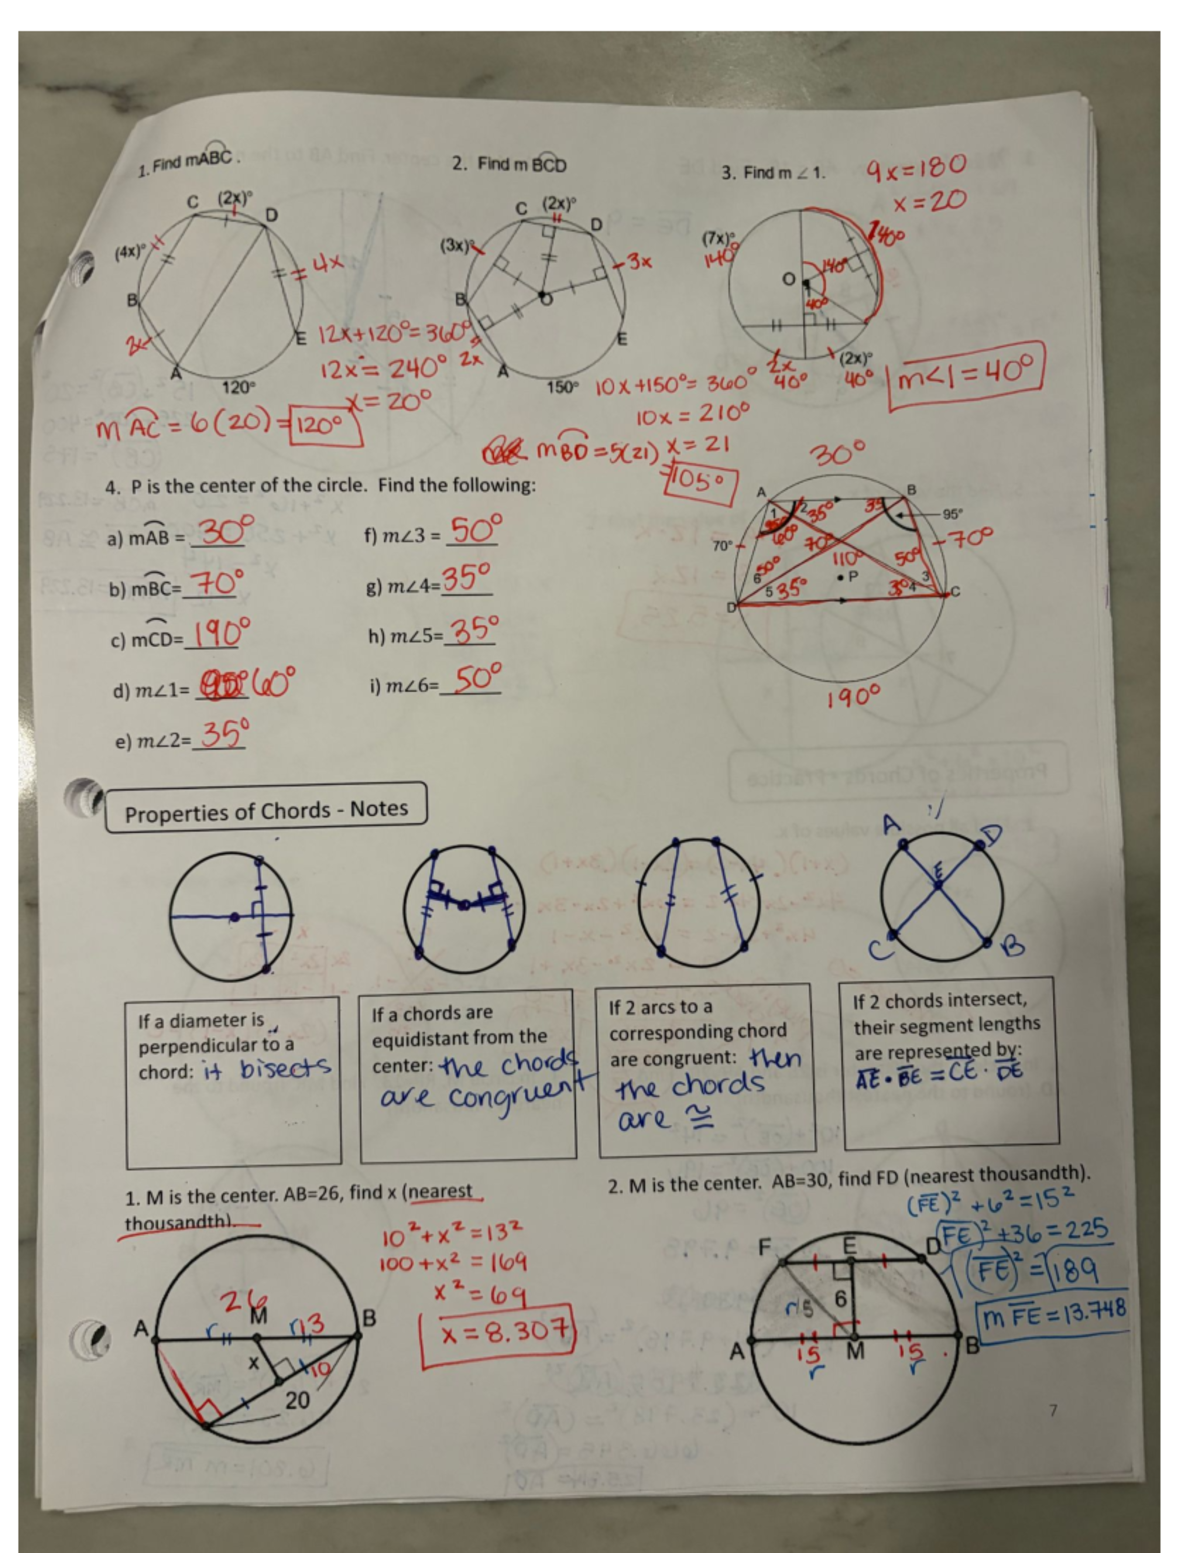 1. Find mABC.
C (2x)° D
(4x)°
4x
B
2x
A
E
120°
12x+120°=360°
12x = 240°
x = 20°
m AC = 6(20) = 120°
2. Find m BCD
C (2x)° D
(3x)°
3x
B
O
2x
A
E
150°
10x+150°=360°
10x = 210°
x = 21
mBD = 5(21)
=105°
3. Find m ∠ 1.
9x=180
x = 20
(7x)°
140°
140°
O
140°
1
40°
2x
40°
(2x)°
40°
m<1=40°
4. P is the center of the circle. Find the following:
a) mAB = 30°
f) m∠3 = 50°
b) mBC= 70°
g) m∠4= 35°
c) mCD= 190°
h) m∠5= 35°
d) m∠1= 60°
i) m∠6= 50°
e) m∠2= 35°
30°
A B
1 2 35° 35
95°
60°
70°
70°
70°
110°
50°
50°
6
P
3
5 35°
35° 4
D C
190°
Properties of Chords - Notes
A D
E
C B
If a diameter is
perpendicular to a
chord: it bisects
If a chords are
equidistant from the
center: the chords
are congruent
If 2 arcs to a
corresponding chord
are congruent: then
the chords
are ≅
If 2 chords intersect,
their segment lengths
are represented by:
AE • BE = CE • DE
1. M is the center. AB=26, find x (nearest
thousandth).
26
A M B
r r 13
x
10
20
10²+x²=13²
100+x² = 169
x² = 69
x = 8.307
2. M is the center. AB=30, find FD (nearest thousandth).
(FE)² + 6² = 15²
(FE)² + 36 = 225
√(FE)² = √189
m FE = 13.748
F E D
r 15 6
A 15 M 15 B
r r
7